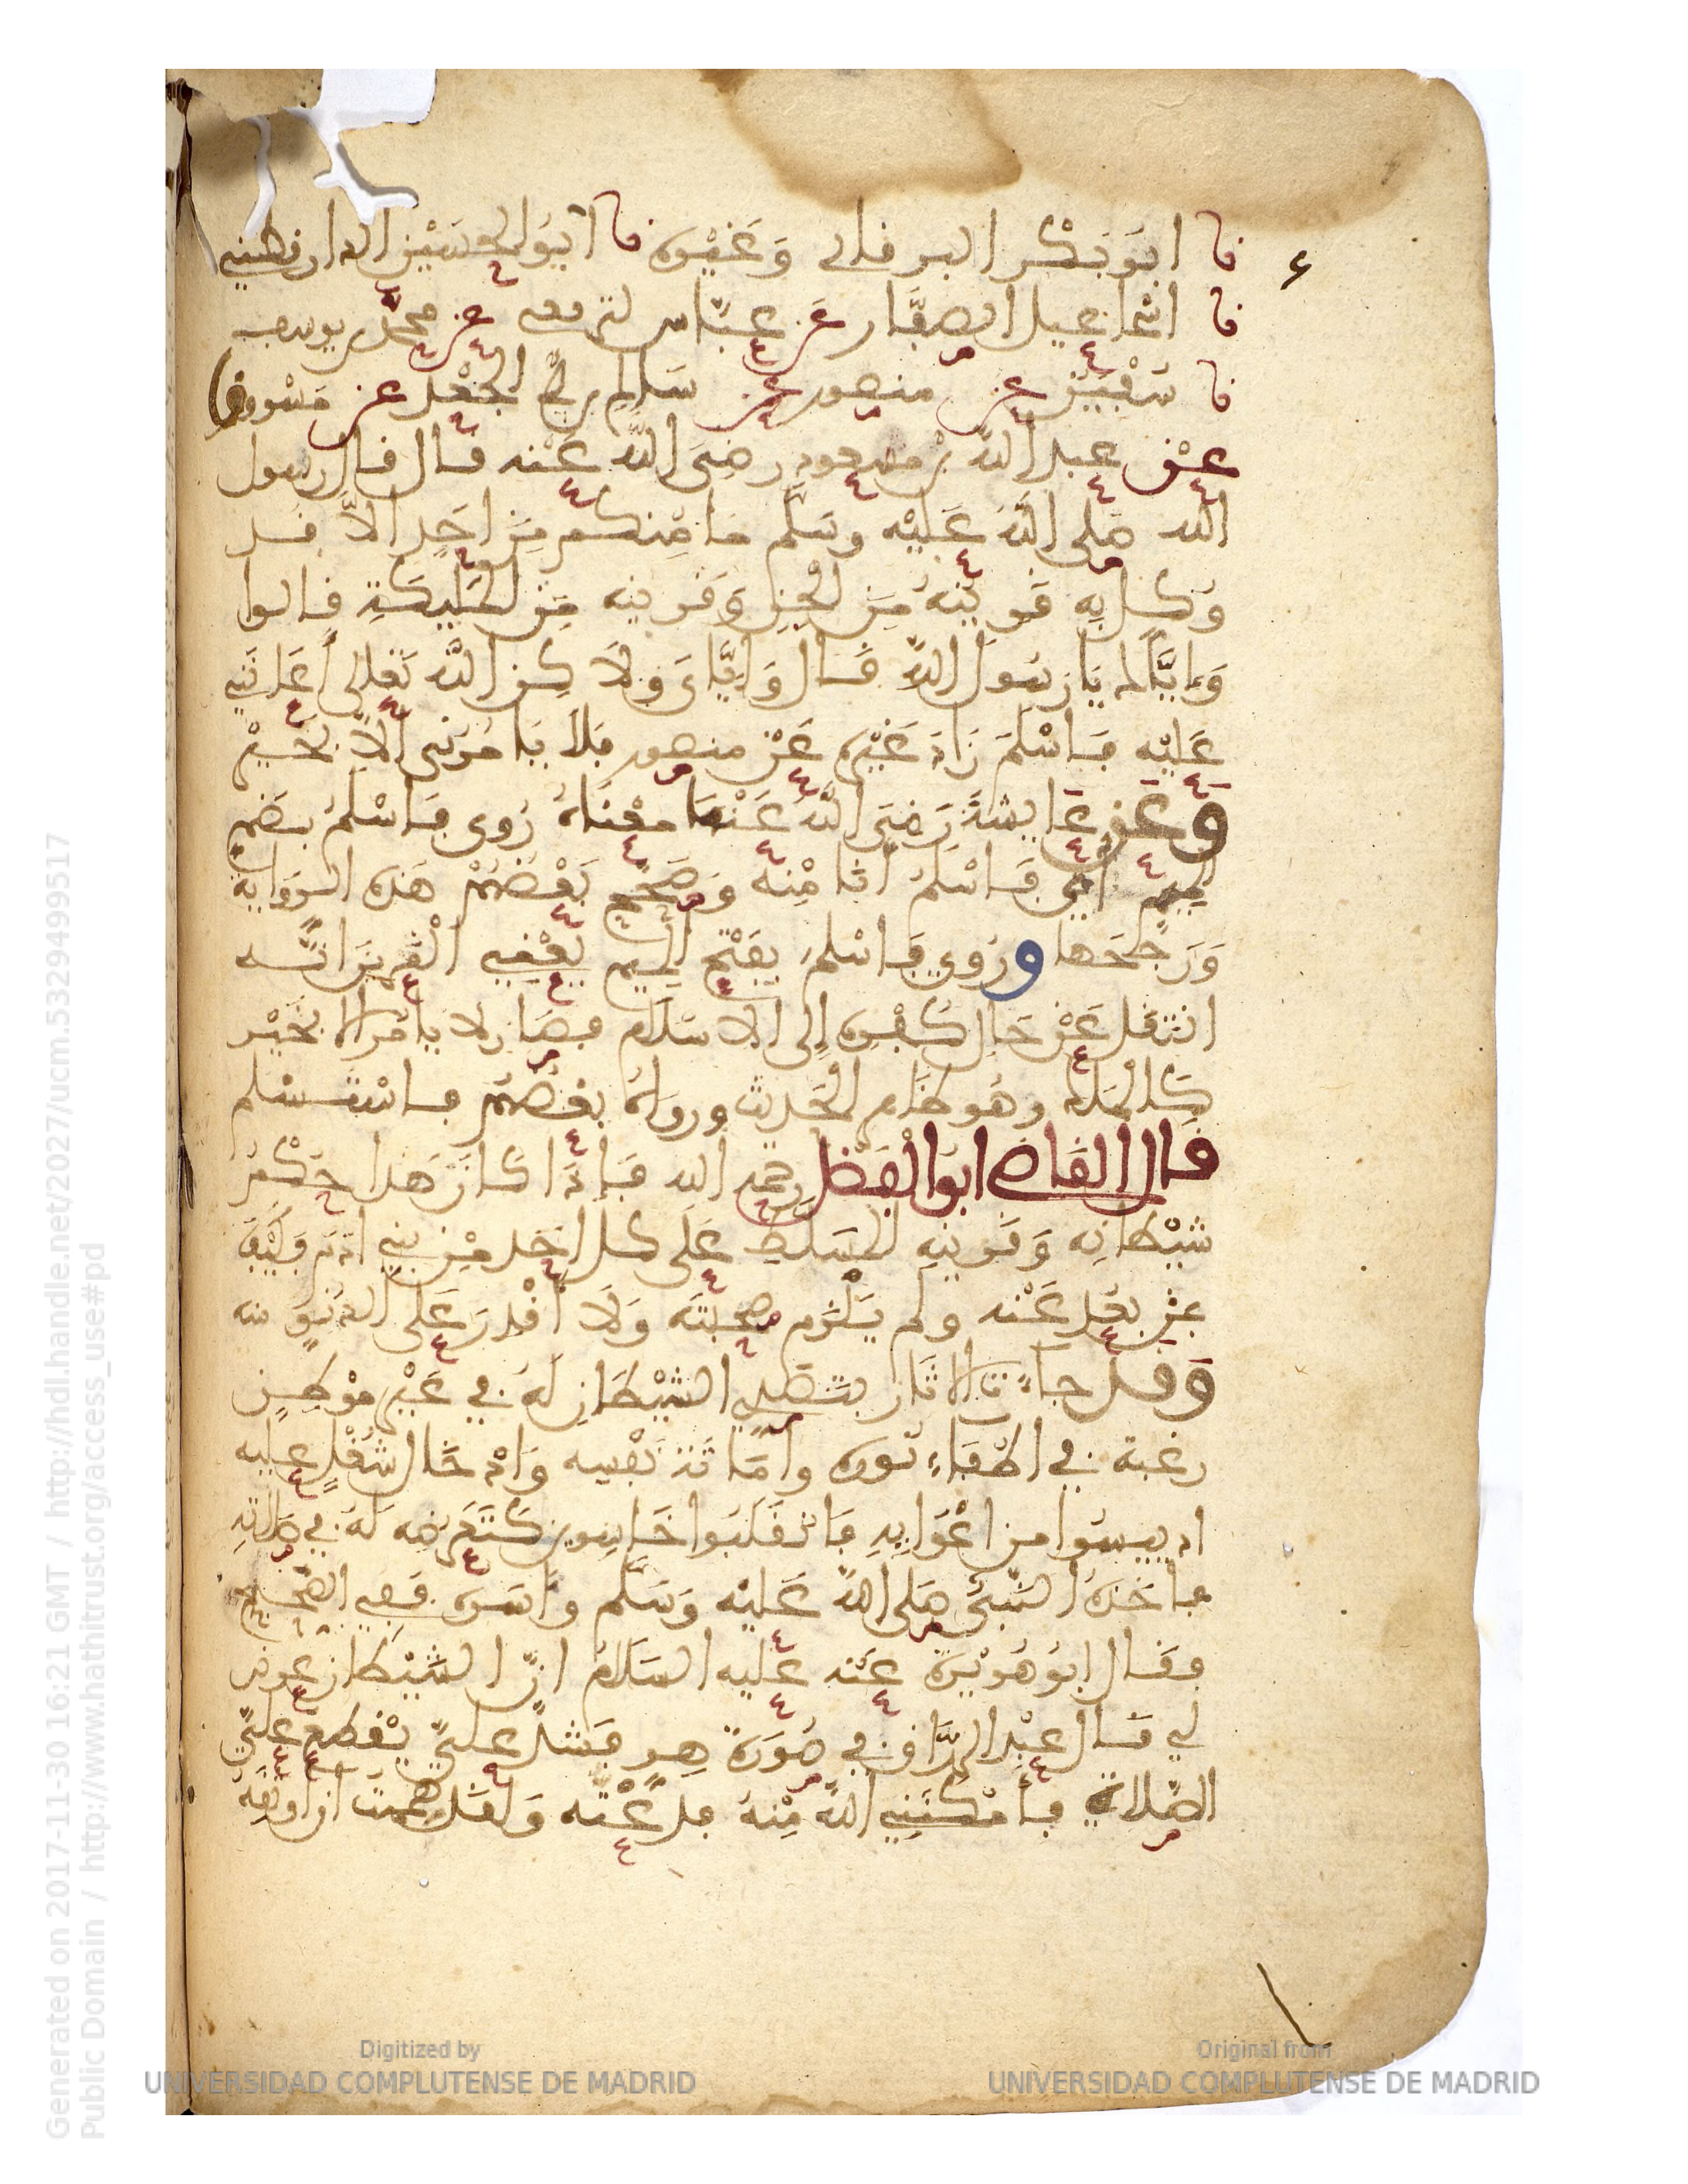 نا ابو بَكْر البرقانى وَغَيْره نا ابُو الحسَيْن الدارقطنِي
نا اسْمَاعيل الصفَّار عَن عبَّاس لترقفى عن محمّد بن يوسف
نا سُفْيَن عن منصور عن سَالم بن أبي الجَعْد عن مَسْروق
عَن عبد اللّه بْن مسعودٍ رضِيَ اللَّه عَنْه قال قال رسول
اللّه صَلى اللَّه عَليْه وسَلّم مَا مِنكم مِن احَدٍ الاَّ قد
وُكلَ بِه قَرينُهُ مِنَ الْجِن وَقَرينه مِن المَليِكَةِ قالوا
وَإيَّاك يَا رَسُولَ اللّه قَال وَإيَّاى وَلَا كِن اللّه تَعَلى أعَانَنِي
عَلَيْه فَاسْلَمَ زَادَ غَيْره عَنْ منصور فَلاَ يَامُرُني الاّ بخَيْر
وعَن عَايشةَ رَضِيَ اللّه عَنْهَا معْنَاهُ رُوى فَاسْلمُ بضَم
الميم أي فَاسْلمُ أنا مِنْه وَصَحّح بَعْضُهُمْ هَذه الرّوَاية
وَرَجحَهَا ورُوي فَاسْلمَ بِفَتْح الميم يَعْنِي الْقَرينَ انّه
انتَقل عَنْ حَال كُفْره إلى الاسْلَام فصَار لا يأمُر الا بخَيْر
كَالْمَلك وهُو ظاهِر الْحَديث ورواهُ بعْضُهُم فاسْتسْلم
قال القاضي ابوا الفَضْل رحمه الله فَإذَا كانَ هَذا حُكْم
شيْطانِه وَقَرينِه المسَلّط عَلَى كل احَد مِن بَني ادَم فَكيْف
بمن بعُد عَنْه ولم يَلْزم صُحبتَه وَلَا أُقْدِرَ عَلى الدنوّ منه
وَقد جاءَت الاثَار بتَصَدي الشيْطَانِ لَهُ في غَيْر مَوْطِن
رغبة في اطْفَاءِ نُوره وَامَاتَة نَفْسه وَادْخَال شُغْلٍ عليه
اذ ييسُوا من اغْوَايِهِ فَانقَلَبُوا خَاسِرين كَتَعَرضه لَهُ في صَلاتِهِ
فاخَذهُ النّبيُّ صَلى اللّه عَليْه وَسَلَّم وأسَره فَفِي الصّحَاح
فقَال ابُو هُرَيْرة عَنه عليه السَلَامُ انّ الشَيْطان عرض
لي قال عبْد الرزَّاق في صُورَة هِرٍ فَشدَّ عليّ يقْطَع عليَّ
الصّلاة فأمْكنَنِي اللّه مِنْهُ فذَعَتُّه وَلَقَد هَممتُ ان اوثِقَهُ
Generated on 2017-11-30 16:21 GMT / http://hdl.handle.net/2027/ucm.5329499517
Public Domain / http://www.hathitrust.org/access_use#pd
Digitized by
UNIVERSIDAD COMPLUTENSE DE MADRID
Original from
UNIVERSIDAD COMPLUTENSE DE MADRID